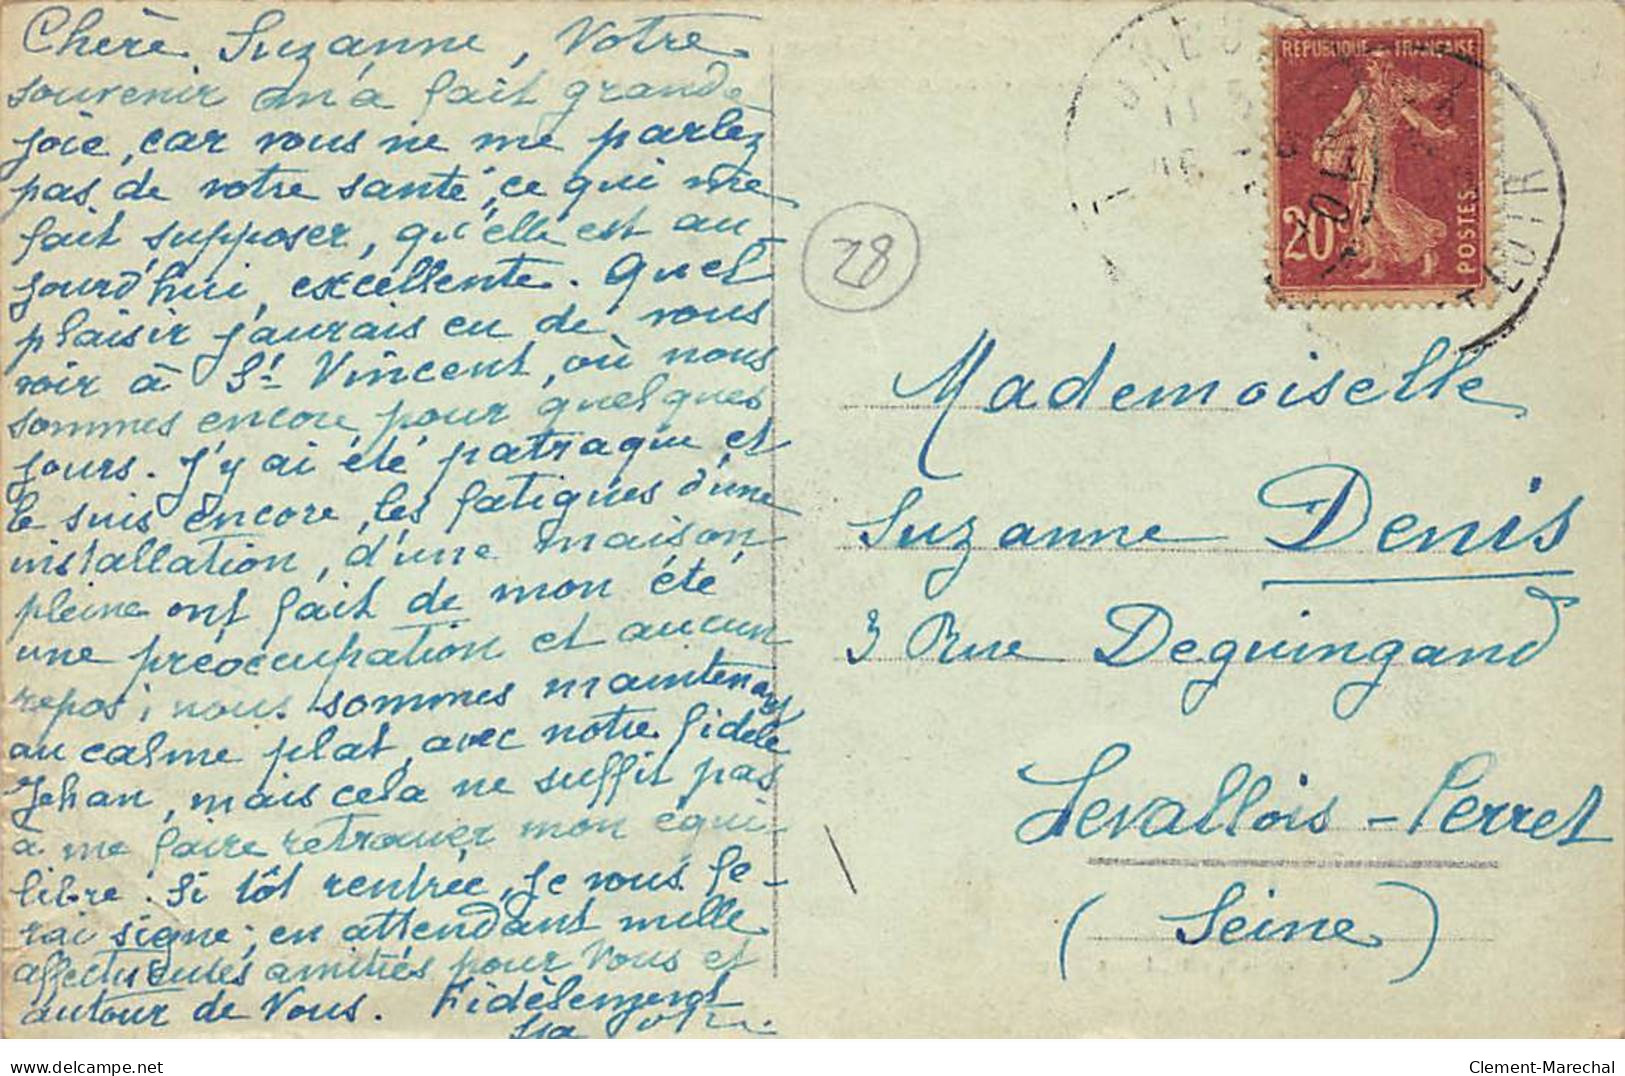 Chère Suzanne, Votre
souvenir m'a fait grande
joie, car vous ne me parlez
pas de votre santé, ce qui me
fait supposer, qu'elle est au-
jourd'hui, excellente. Quel
plaisir j'aurais eu de vous
voir à St Vincent, où nous
sommes encore pour quelques
jours. J'y ai été patraque et
le suis encore, les fatigues d'une
installation, d'une maison
pleine ont fait de mon été
une préoccupation et aucun
repos; nous sommes maintenant
au calme plat, avec notre fidèle
Jehan, mais cela ne suffit pas
à me faire retrouver mon équi-
libre. Si tôt rentrée, je vous fe-
rai signe; en attendant mille
affectueuses amitiés pour Vous et
autour de Vous. Fidèlement
28
REPUBLIQUE FRANÇAISE
20c
POSTES
Mademoiselle
Suzanne Denis
3 Rue Deguingand
Levallois-Perret
(Seine)
www.delcampe.net
Clement-Marechal